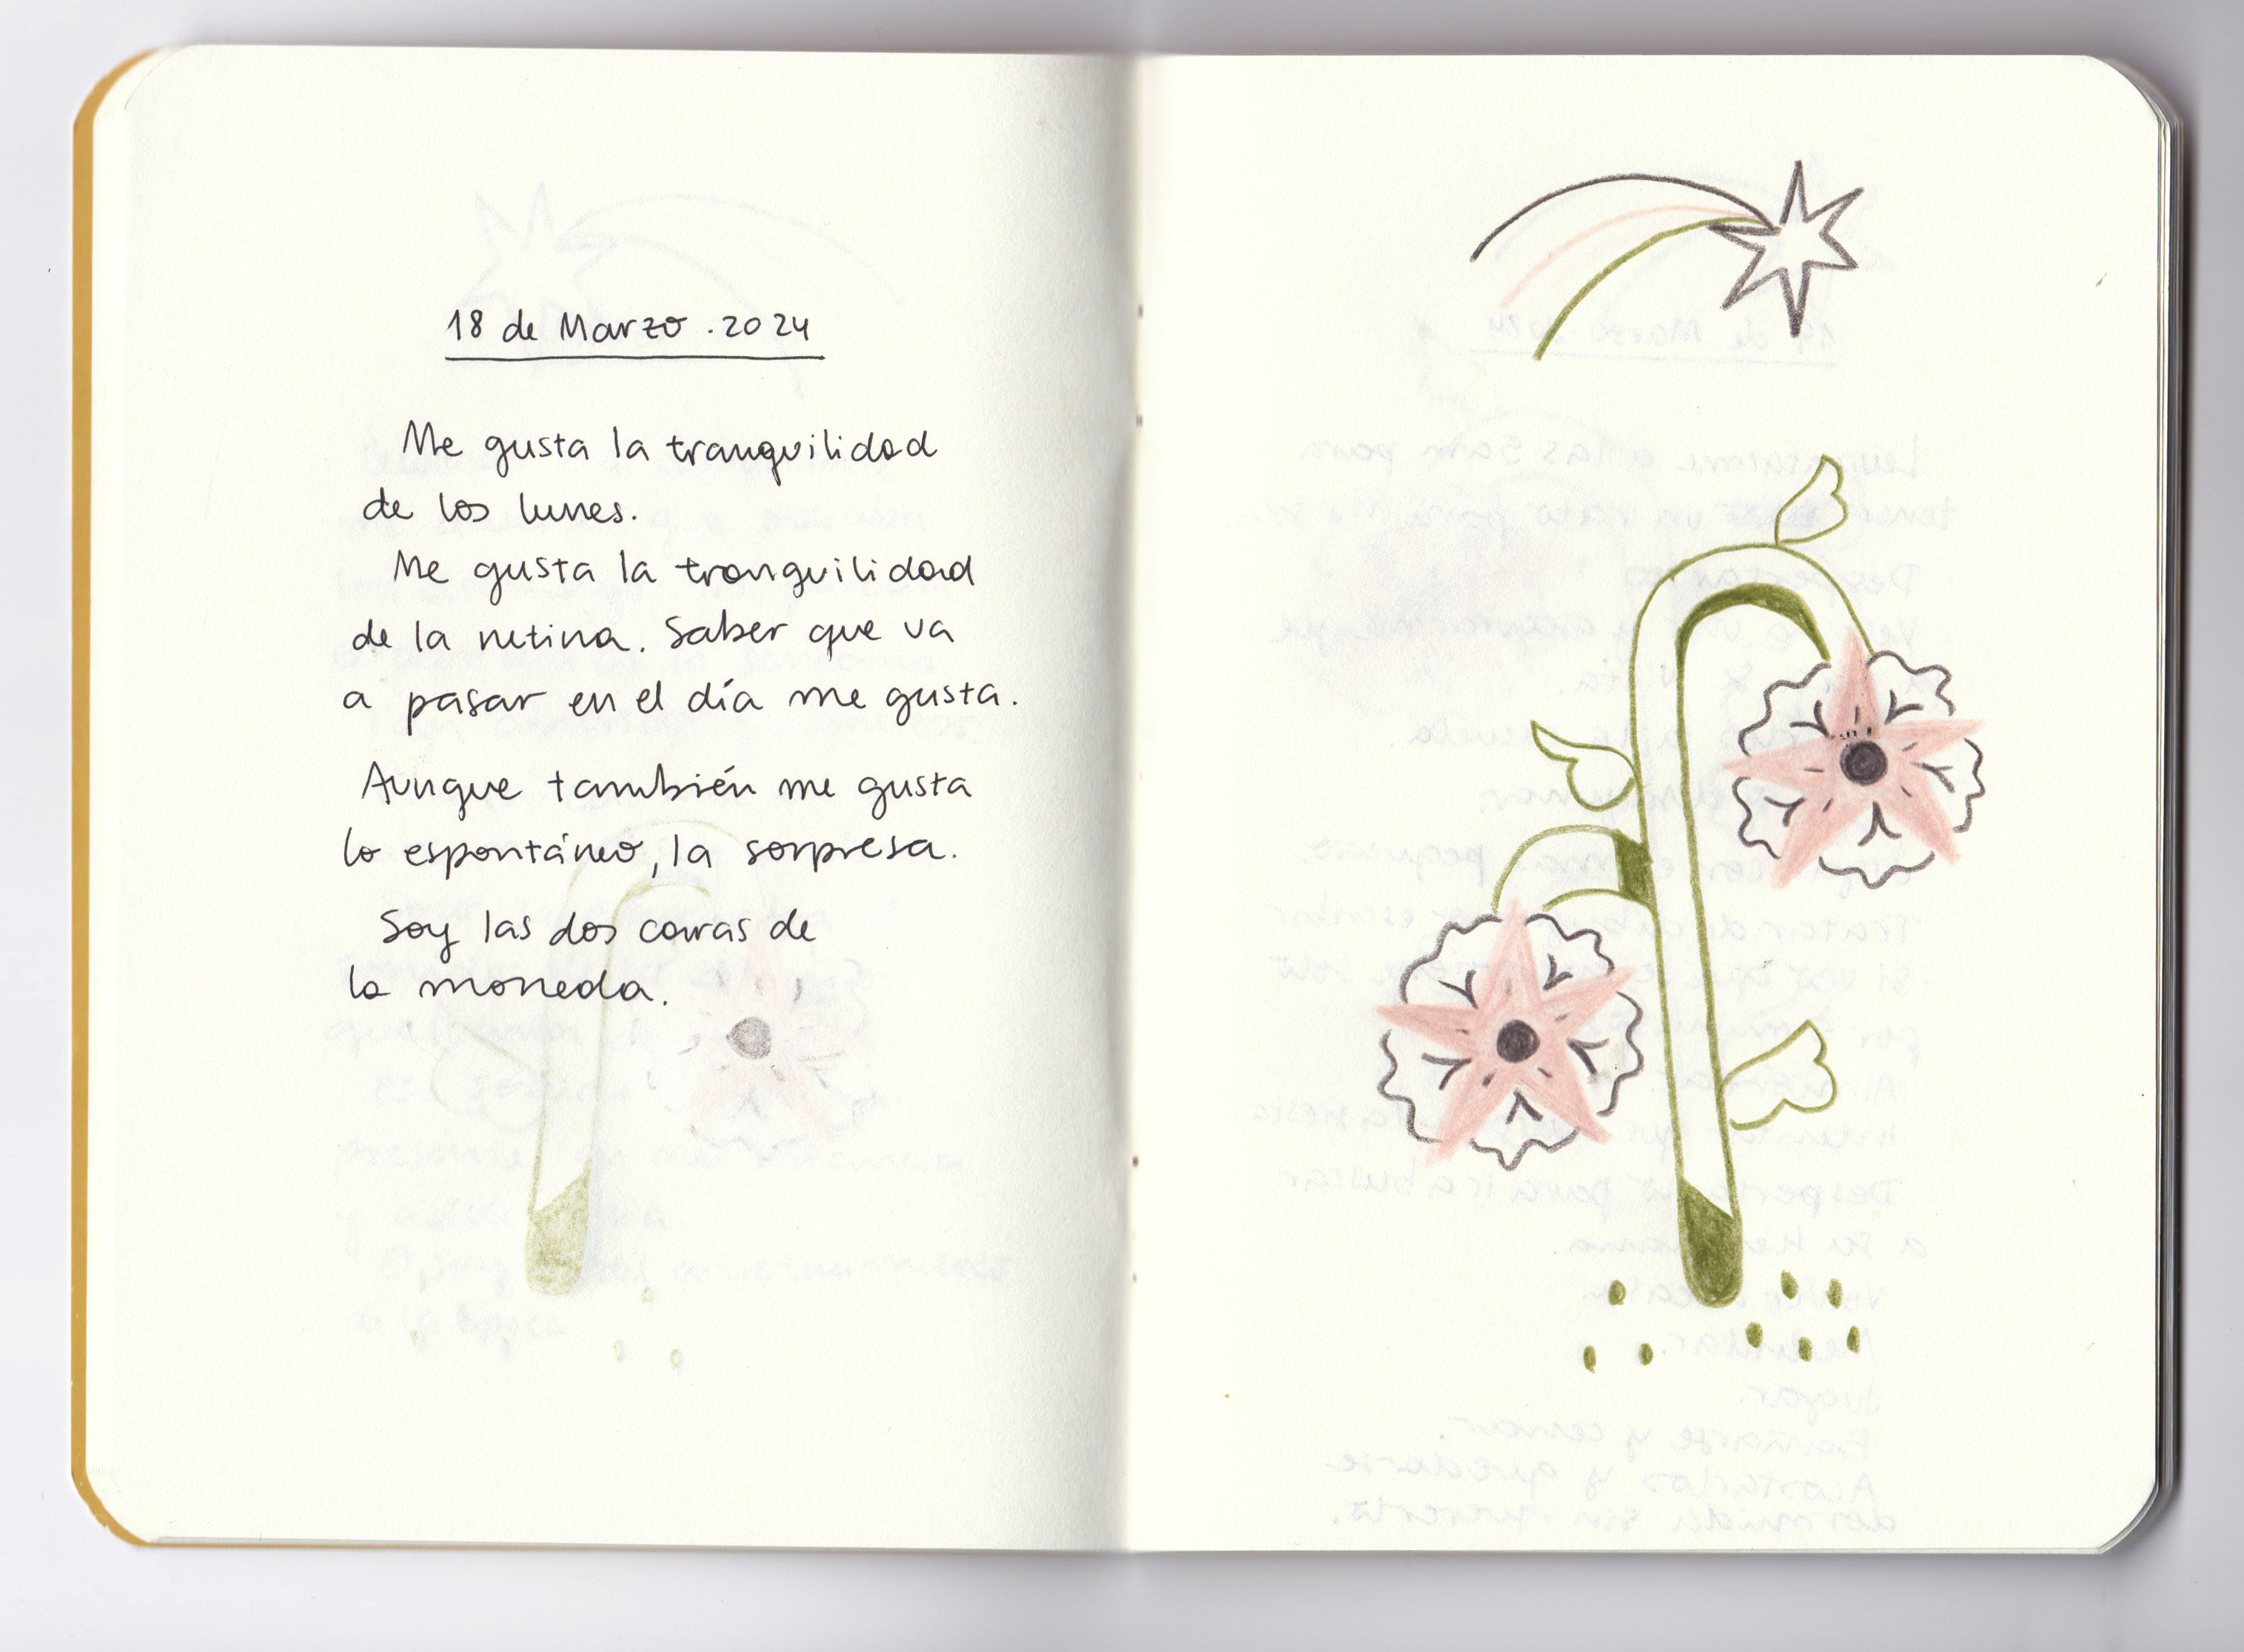 18 de Marzo . 2024
Me gusta la tranquilidad
de los lunes.
Me gusta la tranquilidad
de la rutina. Saber que va
a pasar en el día me gusta.
Aunque también me gusta
lo espontáneo, la sorpresa.
Soy las dos caras de
la moneda.